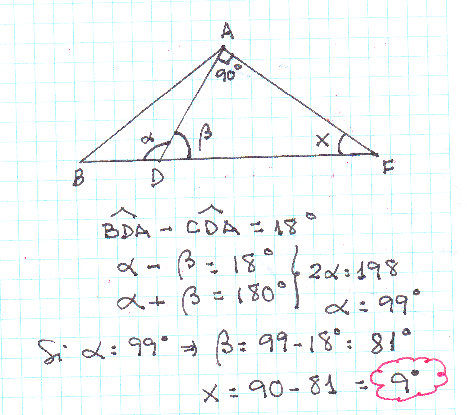 A
90°
α β x
B D F
BDA - CDA = 18°
α - β = 18°
α + β = 180°
2α = 198
α = 99°
Si α = 99° ⇒ β = 99 - 18° = 81°
x = 90 - 81 = 9°